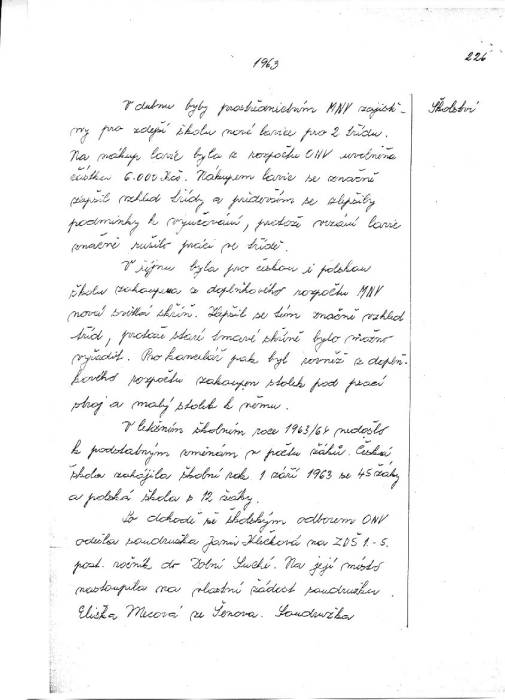 1963
226
Školství
V dubnu byly prostřednictvím MNV zajiště-
ny pro zdejší školu nové lavice pro 2 třídu.
Na nákup lavic byla z rozpočtu ONV uvolněna
částka 6.000 Kčs. Nákupem lavic se značně
zlepšil vzhled třídy a především se zlepšily
podmínky k vyučování, protože vrzání lavic
značně rušilo práci ve třídě.
V říjnu byla pro českou i polskou
školu zakoupena z doplňkového rozpočtu MNV
nová světlá skříň. Zlepšil se tím značně vzhled
tříd, protože staré tmavé skříně bylo možno
vyřadit. Pro kancelář pak byl rovněž z doplň-
kového rozpočtu zakoupen stolek pod psací
stroj a malý stolek k němu.
V letešním školním roce 1963/64 nedošlo
k podstatným změnám v počtu žáků. Česká
škola zahájila školní rok 1 září 1963 se 45 žáky
a polská škola s 12 žáky.
Po dohodě se školským odborem ONV
odešla soudružka Klečková na ZDŠ 1.-5.
post. ročník do Dolní Suché. Na její místo
nastoupila na vlastní žádost soudružka
Eliška Mecová ze Šenova. Soudružka